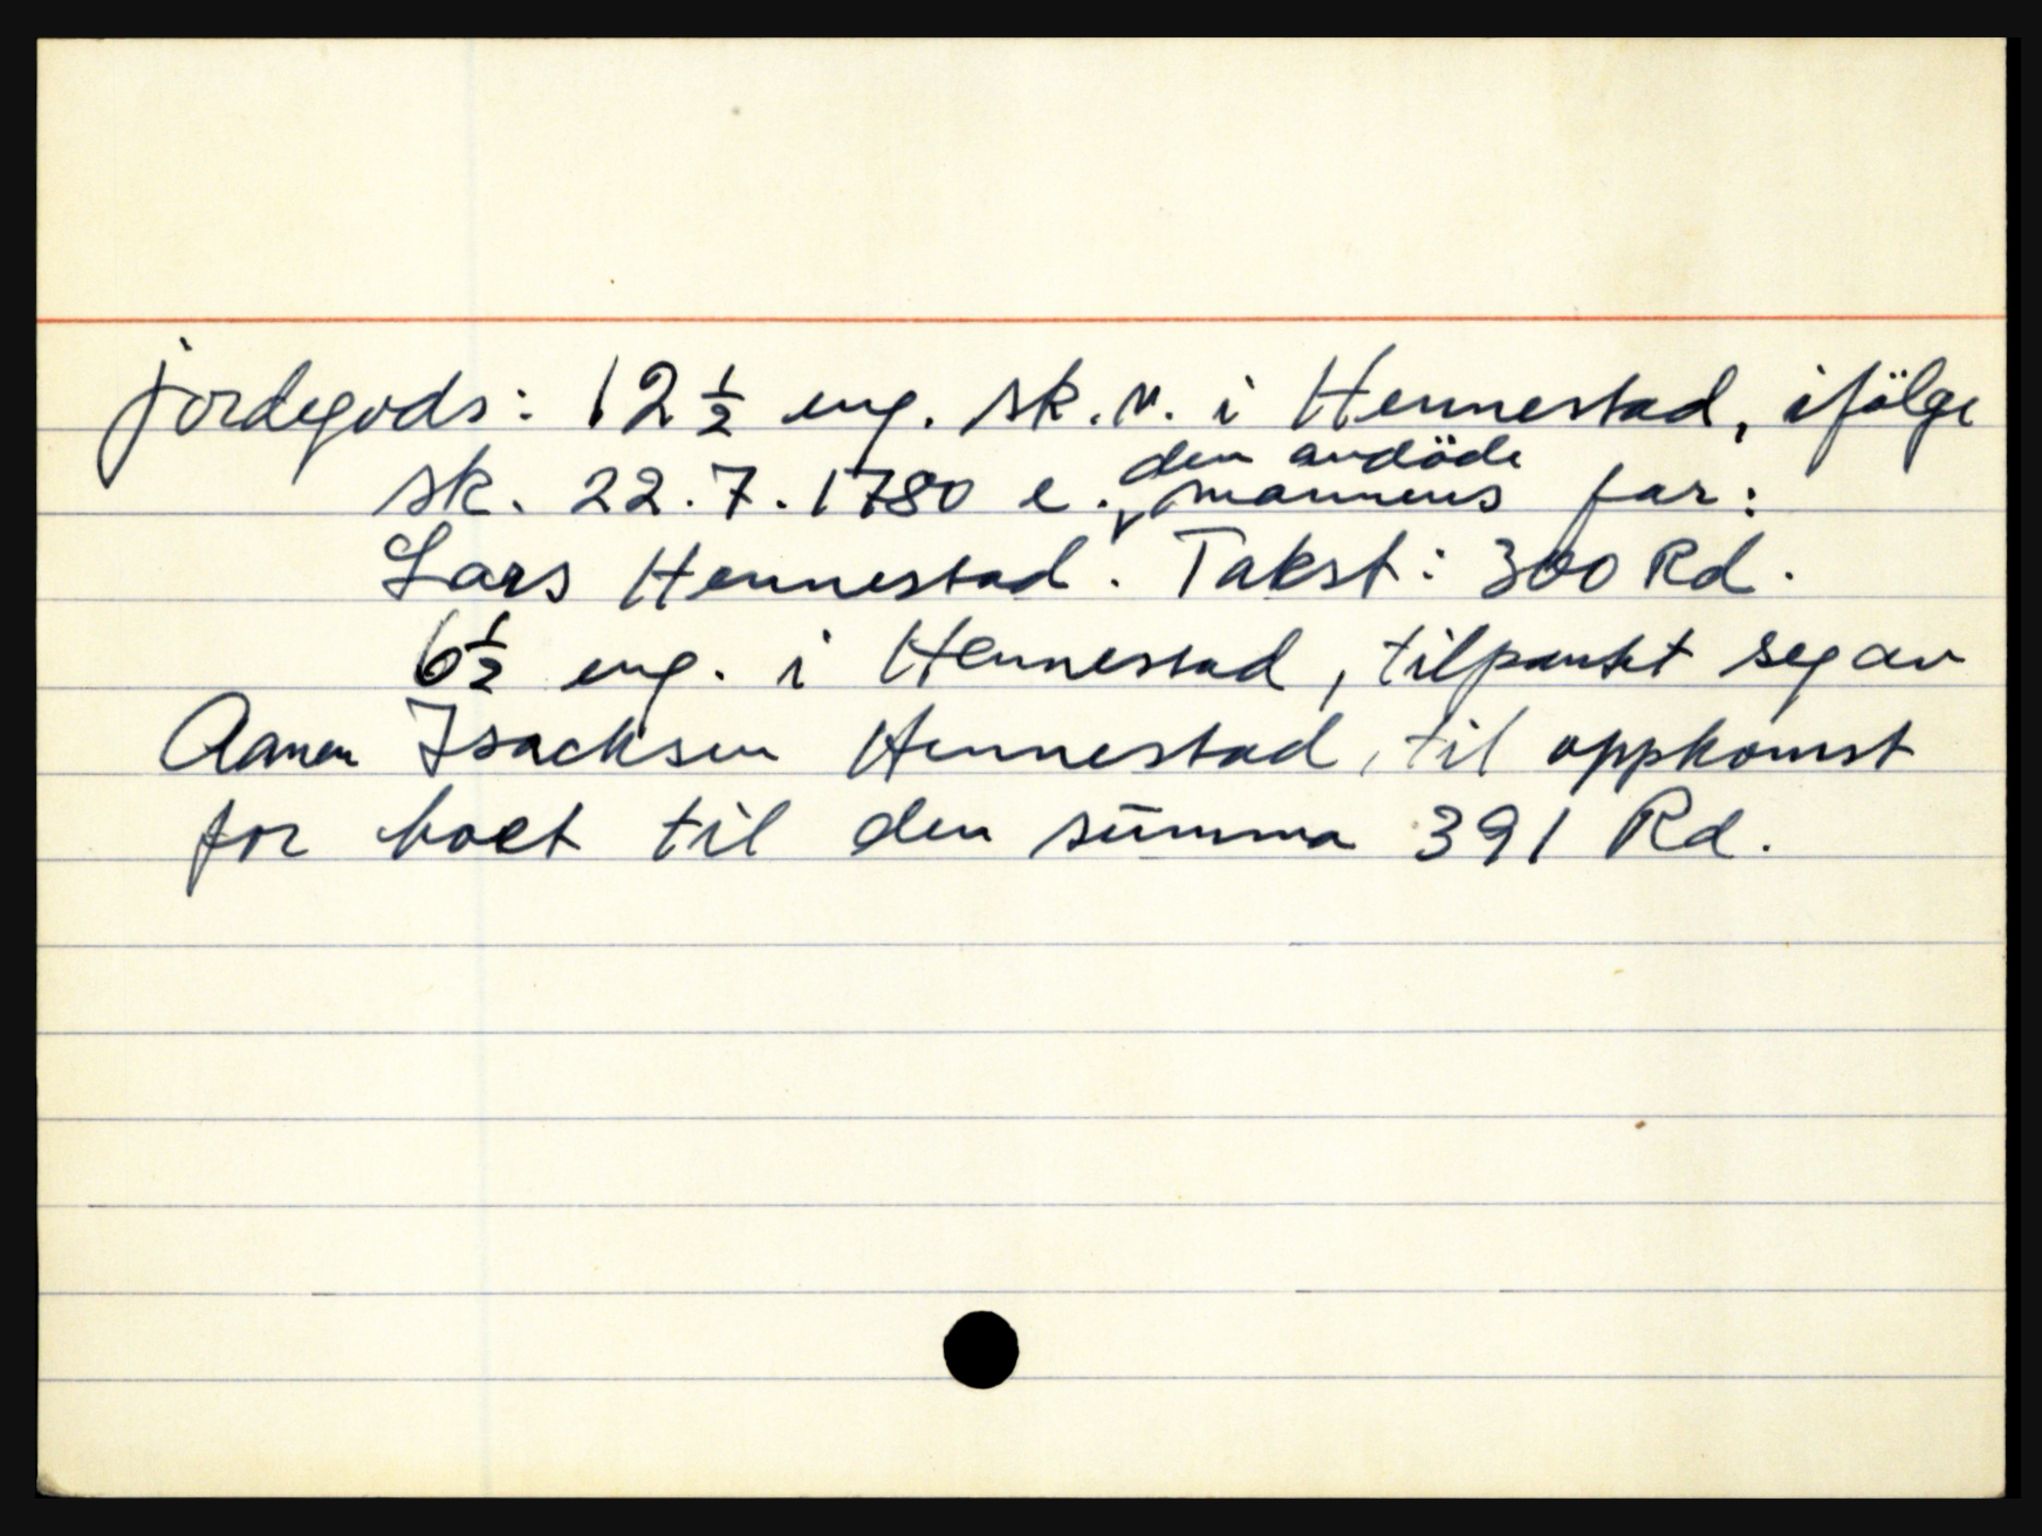 jordegods: 12 ½ eng. sk.v. i Hennestad, ifölge
sk. 22.7.1780 e. den avdöde mannens far:
Lars Hennestad. Takst: 300 Rd.
6½ eng. i Hennestad, tilpantet seg av
Aanen Isachsen Hennestad, til oppkomst
for boet til den summa 391 Rd.